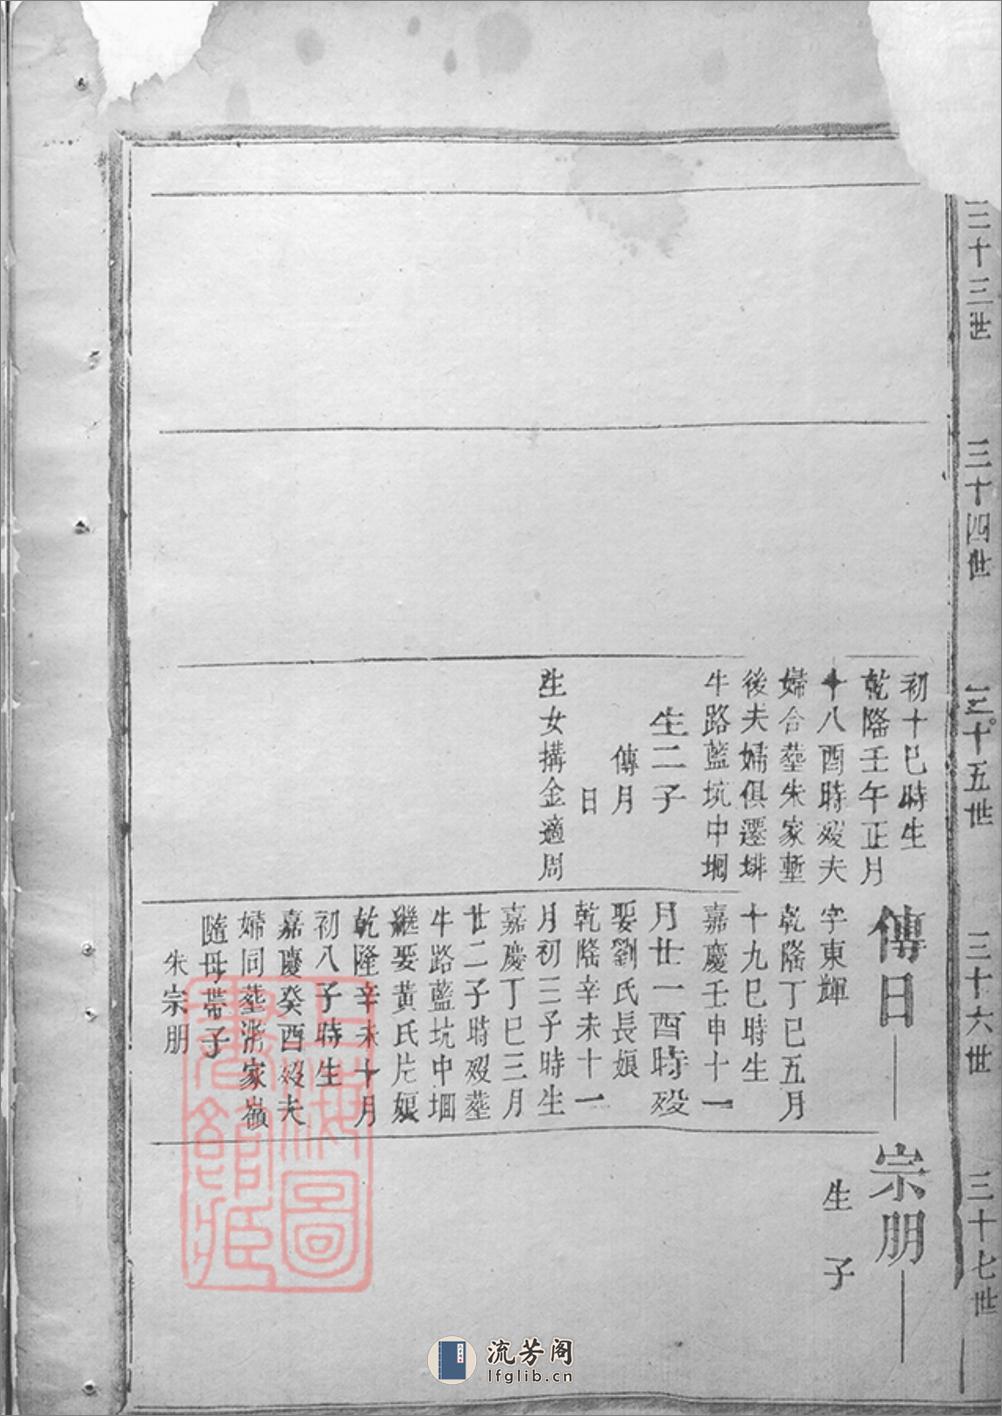 三十三世
三十四世
三十五世
三十六世
三十七世
初十巳時生
乾隆壬午正月
十八酉時歿夫
婦合塟朱家塹
後夫婦俱遷塟
牛路藍坑中堈
生二子
傳月
日
生女搆金適周
傳日
字東輝
乾隆丁巳五月
十九巳時生
嘉慶壬申十一
月廿一酉時歿
娶劉氏長娘
乾隆辛未十一
月初三子時生
嘉慶丁巳三月
廿二子時歿塟
牛路藍坑中堌
繼娶黃氏片娘
乾隆辛未十月
初八子時生
嘉慶癸酉歿夫
婦同塟家嶺
隨母帶子
朱宗朋
宗朋
生 子
上海圖書館藏
流芳阁
lfglib.cn